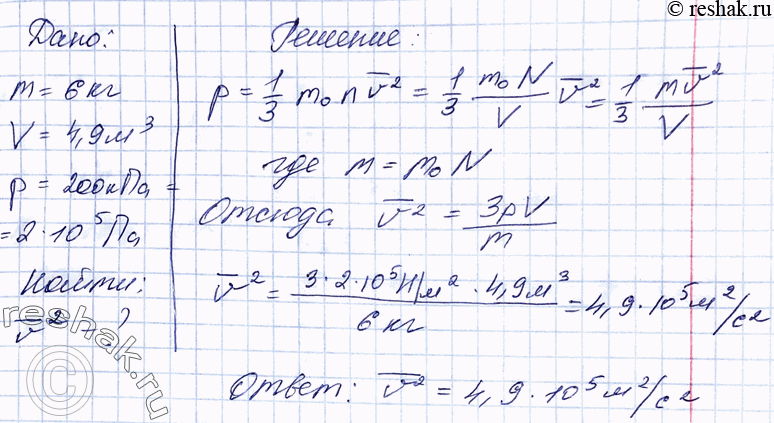 © reshak.ru
Дано:
m = 6 кг
V = 4,9 м³
p = 200 кПа =
= 2 · 10⁵ Па
Найти:
v̅² - ?
Решение:
p = 1/3 m₀ n v̅² = 1/3 m₀ N/V v̅² = 1/3 m v̅²/V
где m = m₀ N
Отсюда v̅² = 3pV/m
v̅² = 3 · 2 · 10⁵ Н/м² · 4,9 м³ / 6 кг = 4,9 · 10⁵ м²/с²
Ответ: v̅² = 4,9 · 10⁵ м²/с²